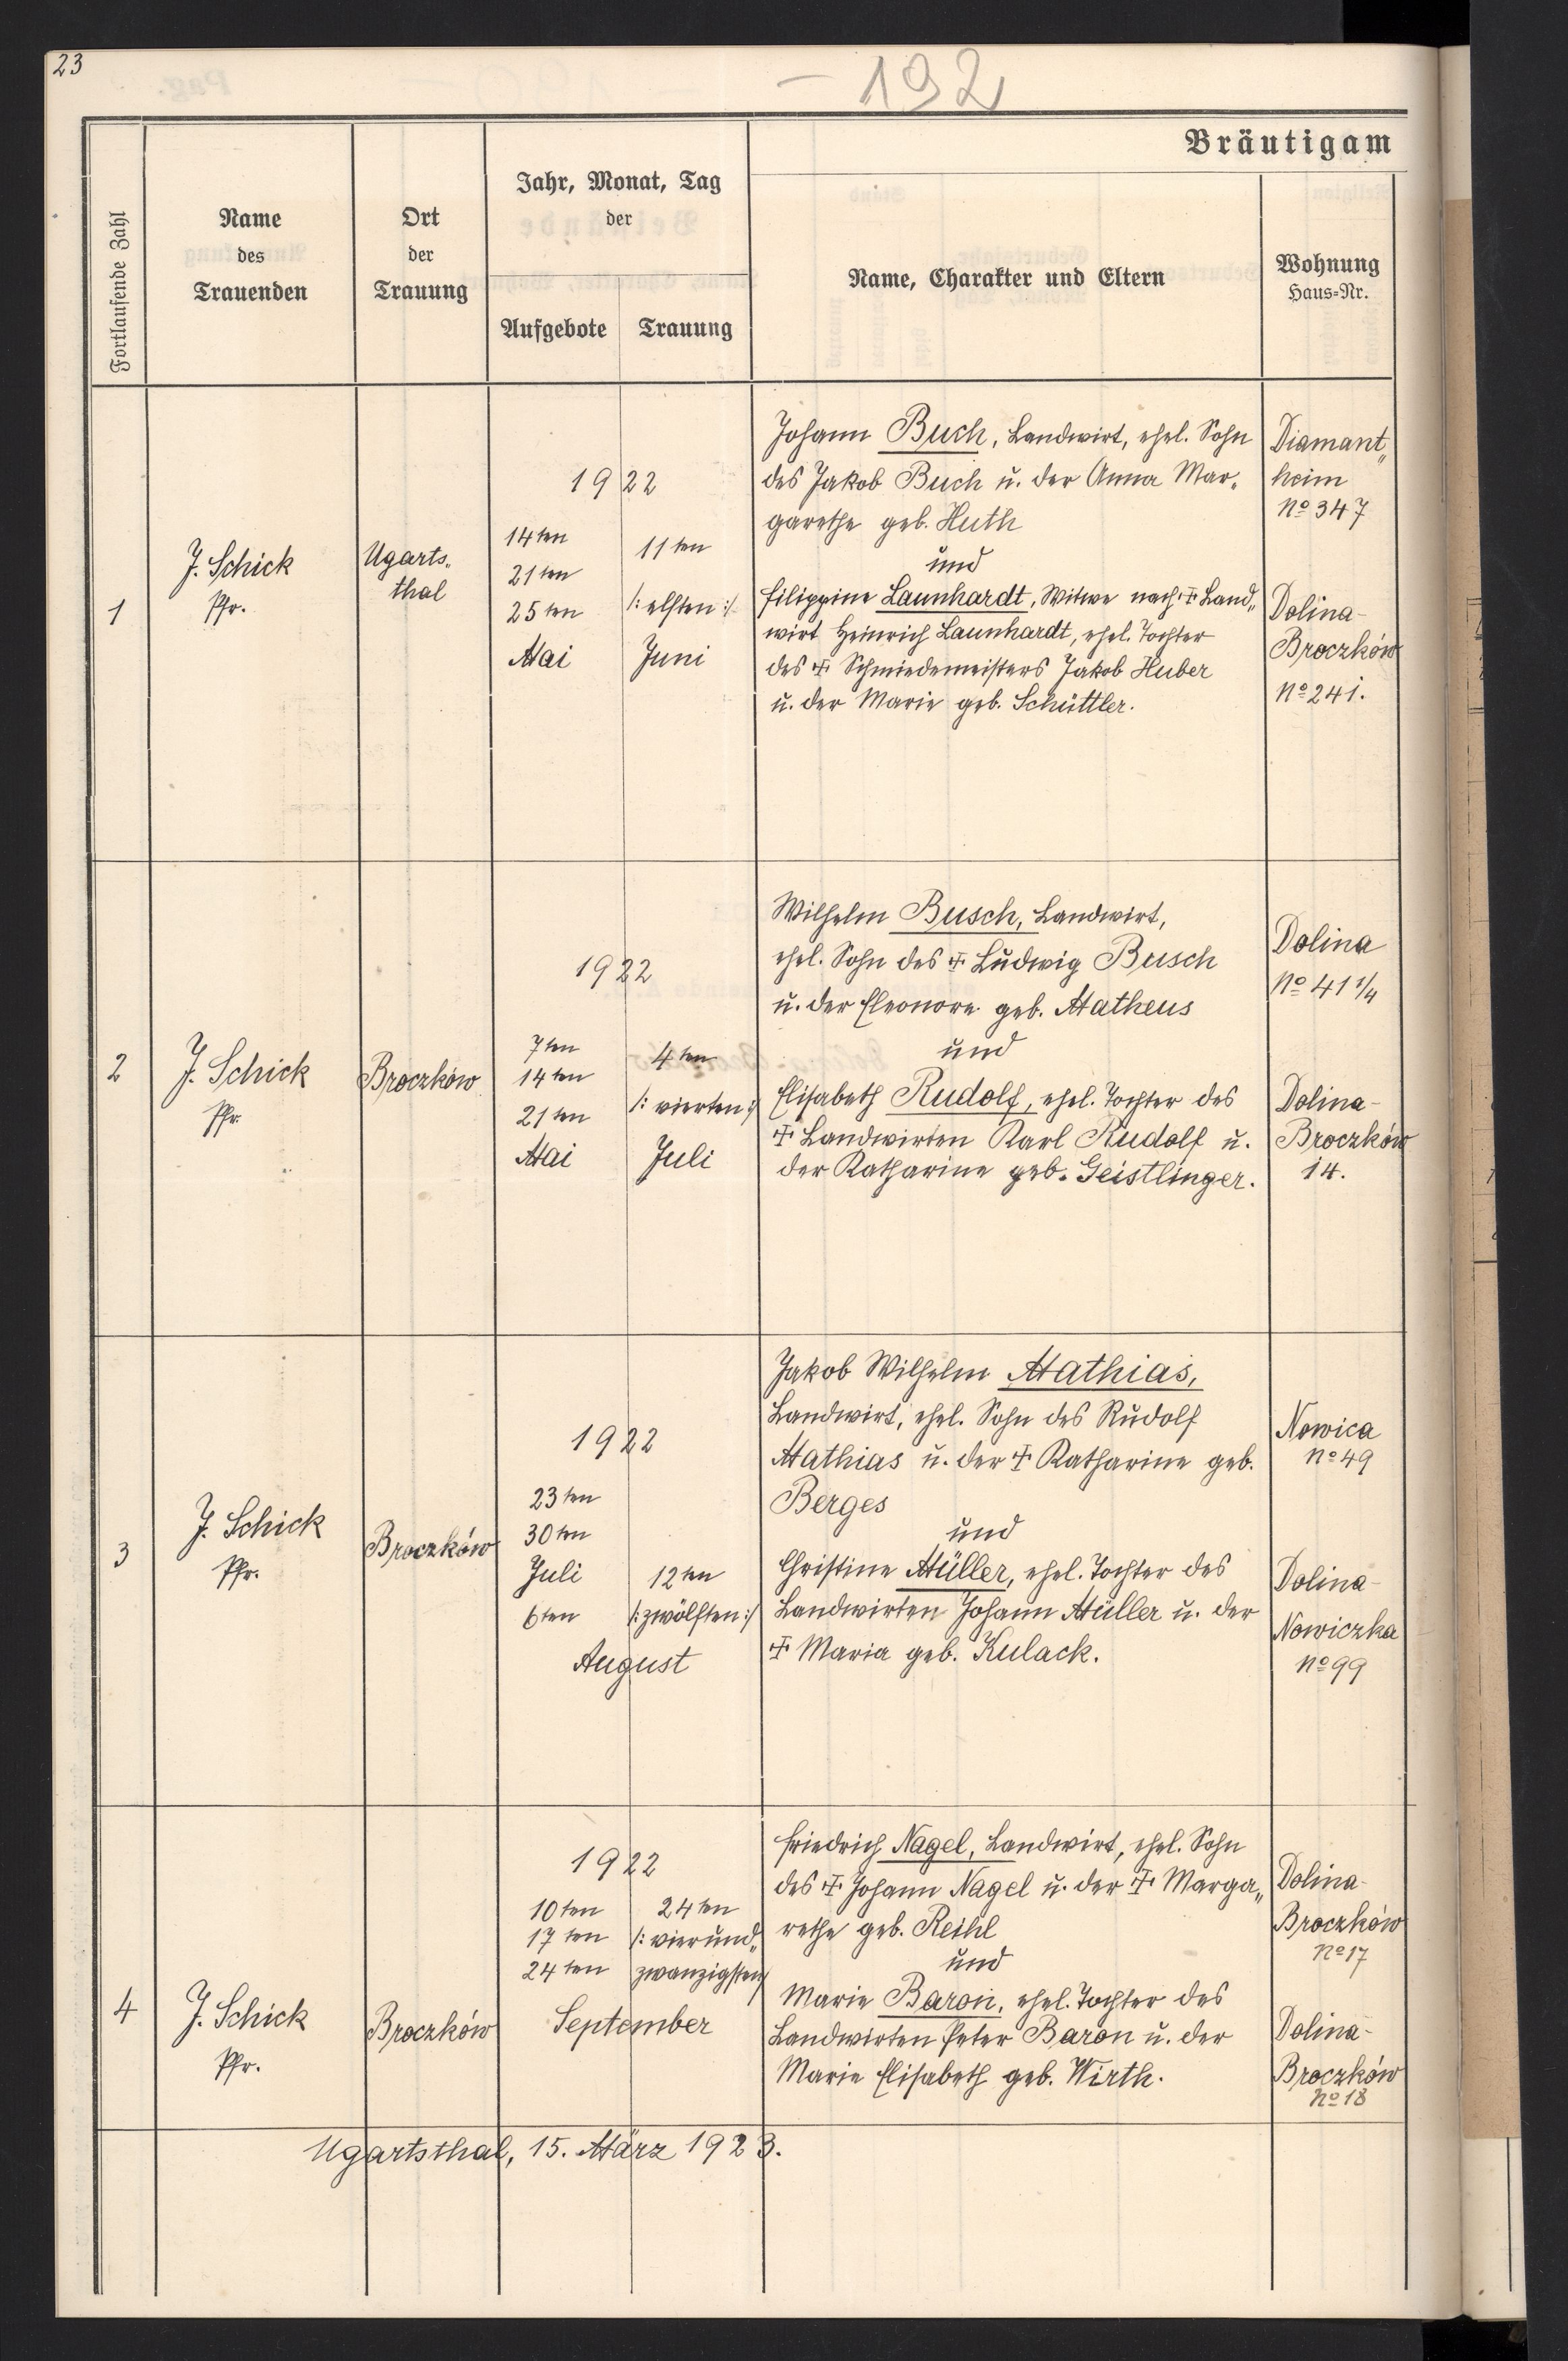 23
- 192
Bräutigam
Fortlaufende Zahl
Name
des
Trauenden
Ort
der
Trauung
Jahr, Monat, Tag
der
Aufgebote
Trauung
Name, Charakter und Eltern
Wohnung
Haus-Nr.
1
J. Schick
Pfr.
Ugarts„
thal
1922
14ten
21ten
25ten
Mai
11ten
/: elften :/
Juni
Johann Buch, Landwirt, ehel. Sohn
des Jakob Buch u. der Anna Mar„
garethe geb. Huth
und
Filippine Launhardt, Witwe nach ✝ Land„
wirt Heinrich Launhardt, ehel. Tochter
des ✝ Schmiedemeisters Jakob Huber
u. der Marie geb. Schüttler.
Diamant„
heim
No 347
Dolina-
Broczków
No 241.
2
J. Schick
Pfr.
Broczków
1922
7ten
14ten
21ten
Mai
4ten
/: vierten :/
Juli
Wilhelm Busch, Landwirt,
ehel. Sohn des ✝ Ludwig Busch
u. der Eleonore geb. Matheus
und
Elisabeth Rudolf, ehel. Tochter des
✝ Landwirten Karl Rudolf u.
der Katharine geb. Geistlinger.
Dolina
No 41 1/4
Dolina-
Broczków
14.
3
J. Schick
Pfr.
Broczków
1922
23ten
30ten
Juli
6ten
12ten
/: zwölften :/
August
Jakob Wilhelm Mathias,
Landwirt, ehel. Sohn des Rudolf
Mathias u. der ✝ Katharine geb.
Berges
und
Christine Müller, ehel. Tochter des
Landwirten Johann Müller u. der
✝ Maria geb. Kulack.
Nowica
No 49
Dolina-
Nowiczka
No 99
4
J. Schick
Pfr.
Broczków
1922
10ten
17ten
24ten
24ten
/: vierund„
zwanzigsten/
September
Friedrich Nagel, Landwirt, ehel. Sohn
des ✝ Johann Nagel u. der ✝ Marga„
rethe geb. Reihl
und
Marie Baron, ehel. Tochter des
Landwirten Peter Baron u. der
Marie Elisabeth geb. Wirth.
Dolina-
Broczków
No 17
Dolina-
Broczków
No 18
Ugartsthal, 15. März 1923.